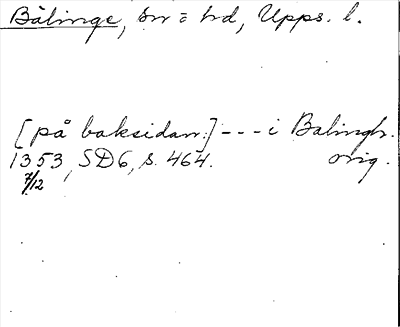 Bälinge, sn = hd, Upps. l.
[på baksidan:] --- i Balingh.
1353, SD6, s. 464. orig.
7/12